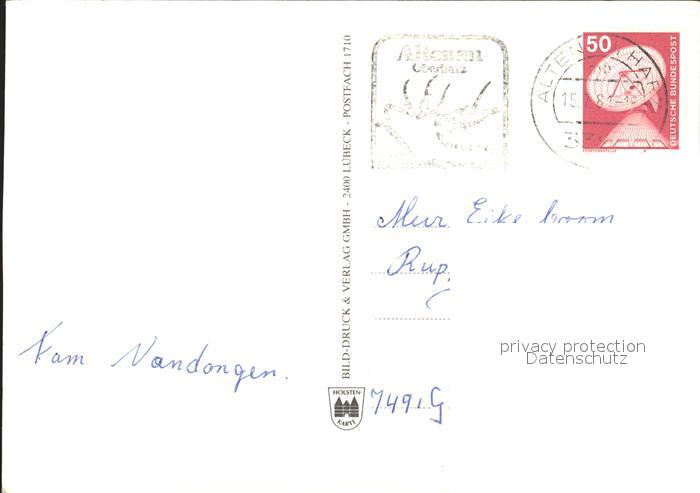 Kam Vandongen.
BILD-DRUCK & VERLAG GMBH - 2400 LÜBECK - POSTFACH 1710
HOLSTEN
KARTE
Altenau
Oberharz
ALTENAU, HARZ
15.7.8
50
DEUTSCHE BUNDESPOST
Meur. Eike boom
Rup.
7491 G
privacy protection
Datenschutz